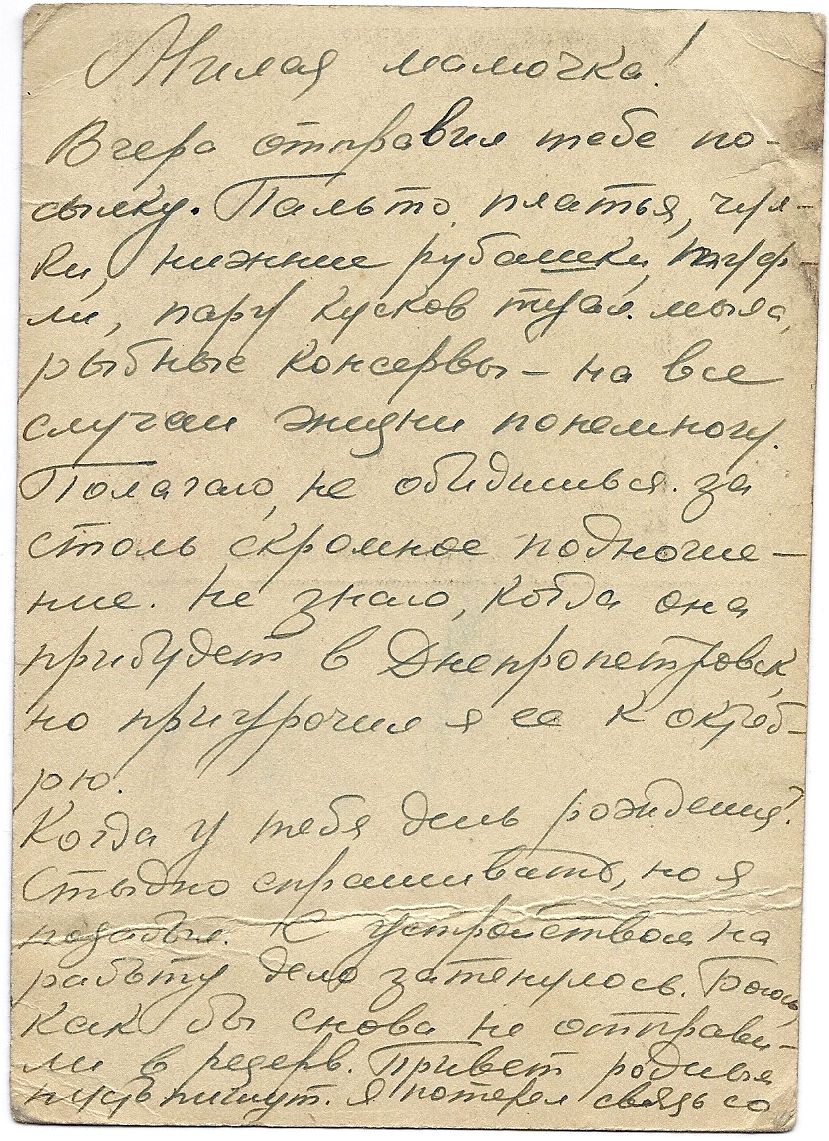 Милая мамочка!
Вчера отправил тебе по-
сылку. Пальто, платья, чул-
ки, нижние рубашки, туф-
ли, пару кусков туал. мыла,
рыбные консервы – на все
случаи жизни понемногу.
Полагаю, не обидишься за
столь скромное подноше-
ние. Не знаю, когда она
прибудет в Днепропетровск,
но приурочил я ее к октяб-
рю.
Когда у тебя день рождения?
Стыдно спрашивать, но я
позабыл. С устройством на
работу дело затянулось. Боюсь,
как бы снова не отправи-
ли в резерв. Привет родным
пусть пишут. Я потерял связь со